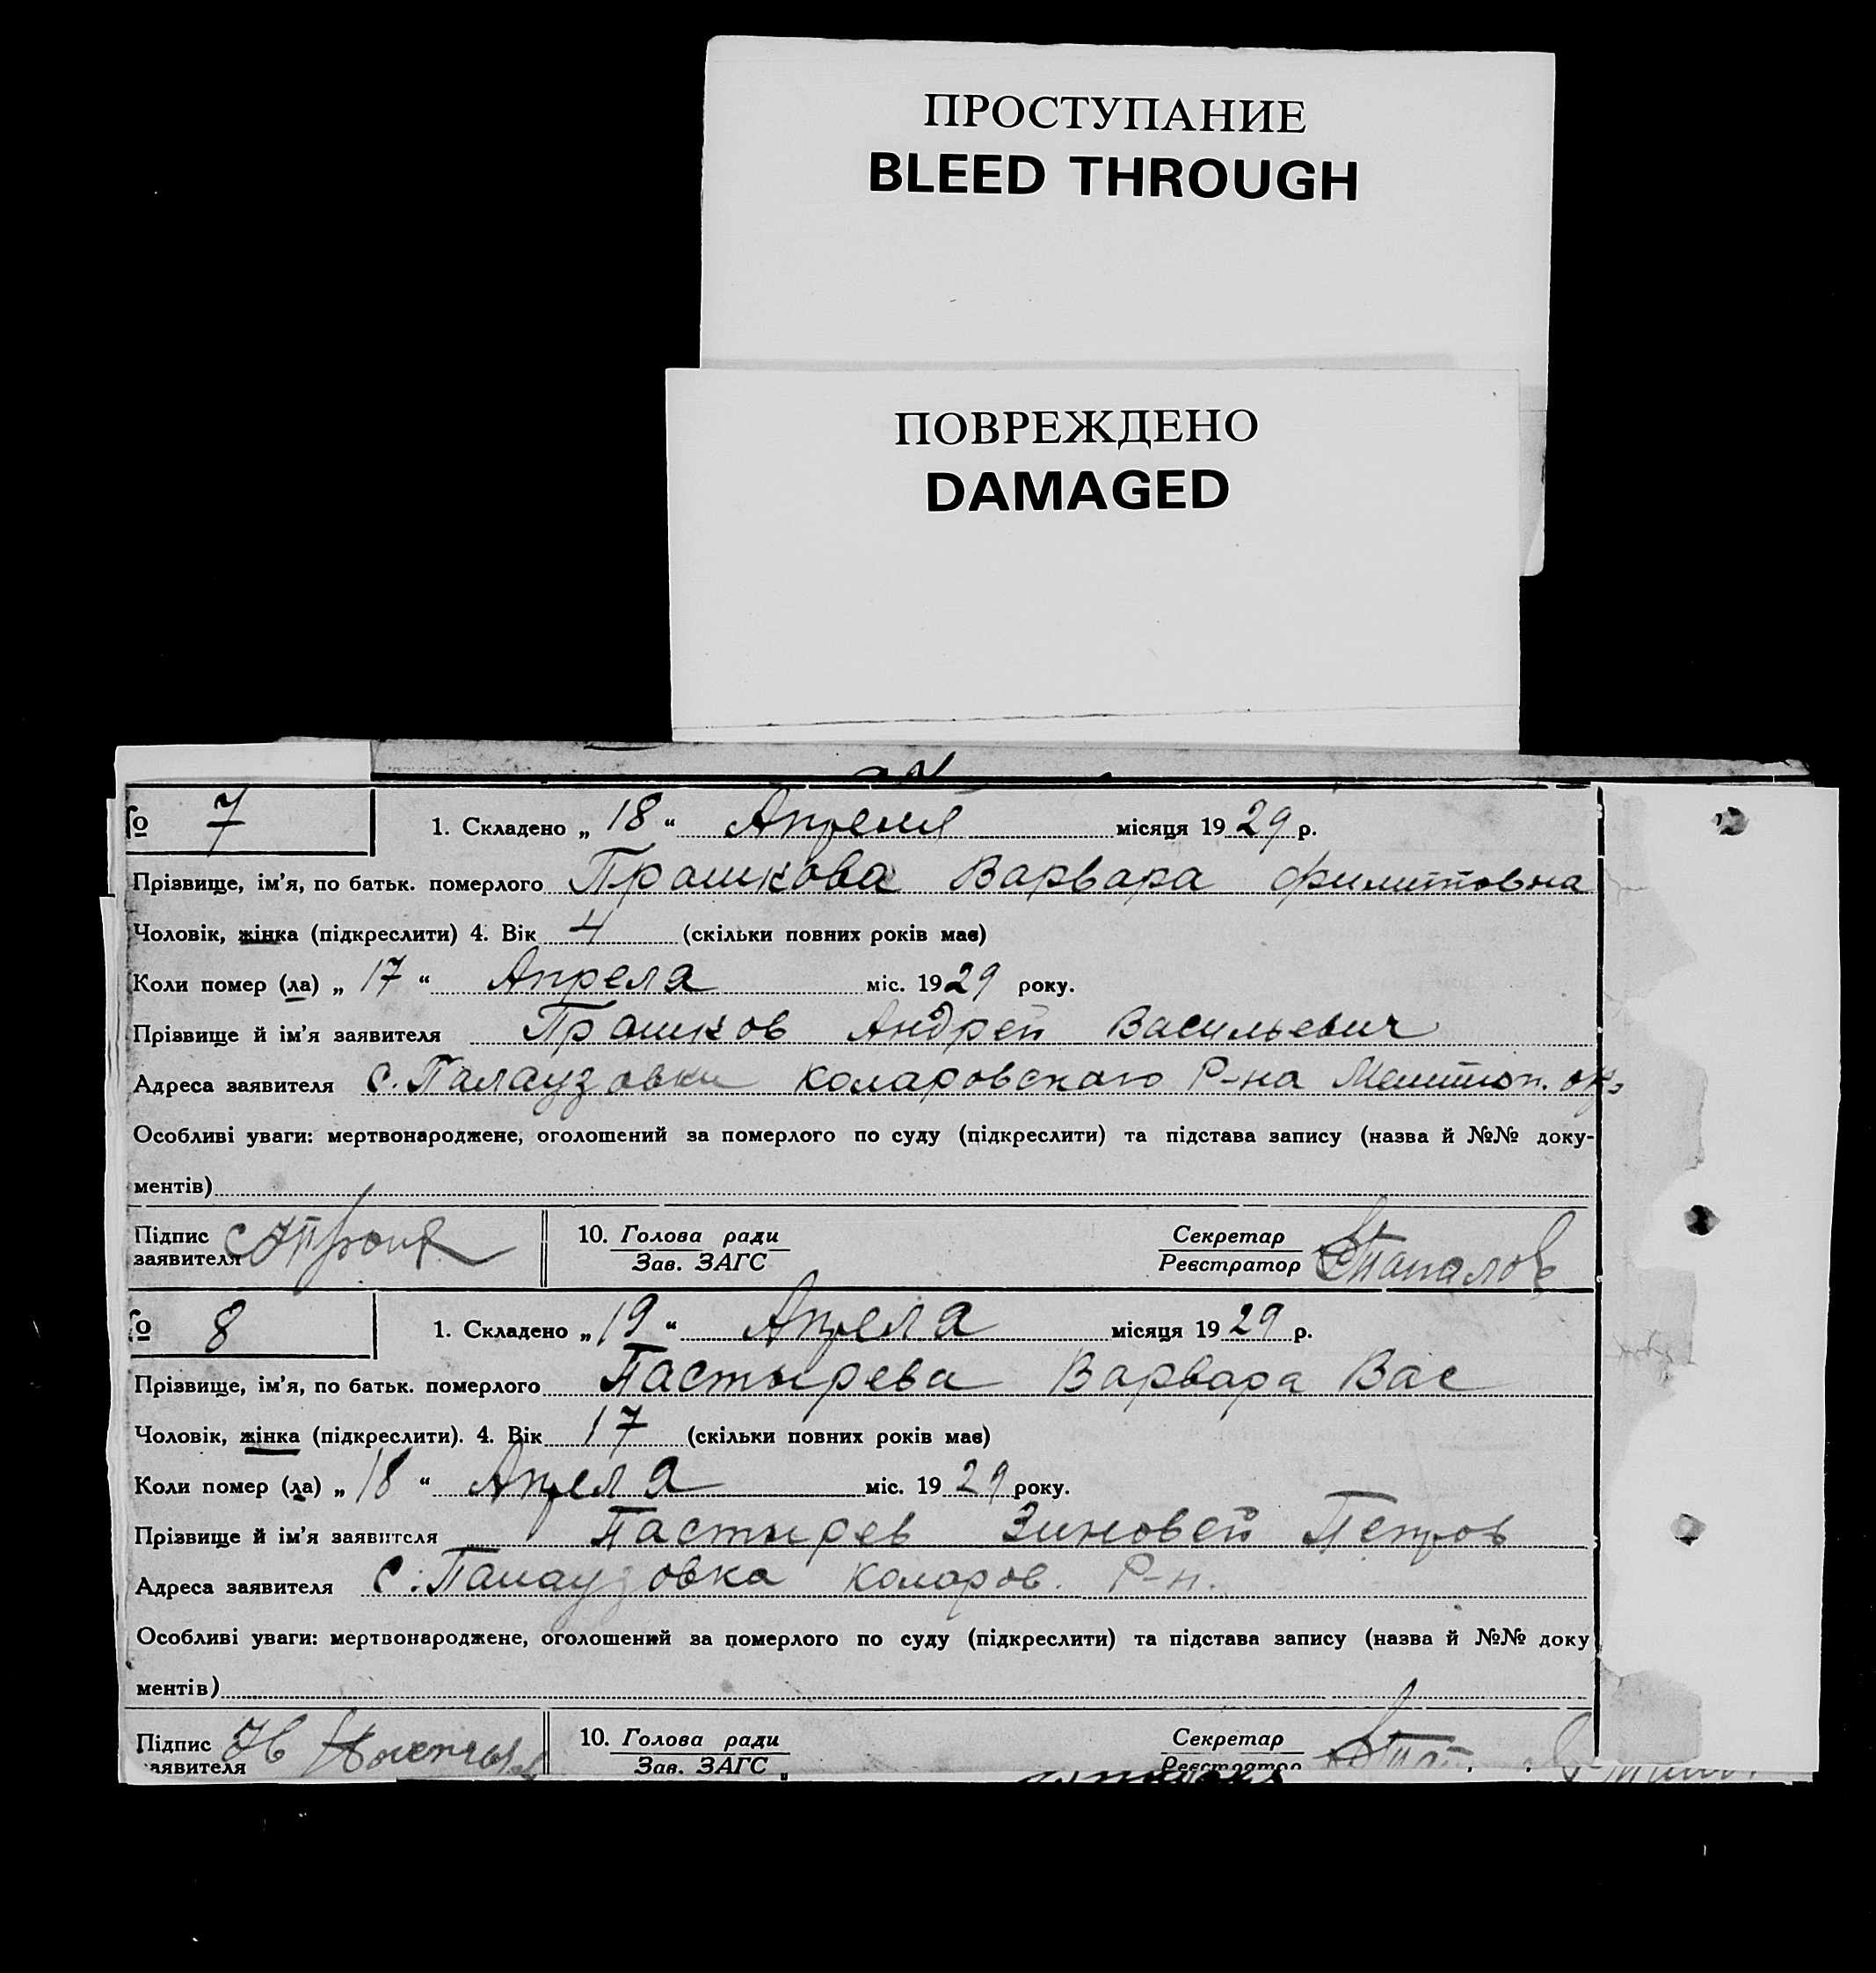 ПРОСТУПАНИЕ
BLEED THROUGH
ПОВРЕЖДЕНО
DAMAGED
№ 7 1. Складено „ 18 “ Апреля місяця 1929 р.
Прізвище, ім’я, по батьк. померлого Прошкова Варвара Филипповна
Чоловік, жінка (підкреслити) 4. Вік 4 (скільки повних років має)
Коли помер (ла) „ 17 “ Апреля міс. 1929 року.
Прізвище й ім’я заявителя Прошков Андрей Васильевич
Адреса заявителя с. Палаузовки Коларовскаго Р-на Мелитоп. окр
Особливі уваги: мертвонароджене, оголошений за померлого по суду (підкреслити) та підстава запису (назва й №№ доку-
ментів)
Підпис заявителя 10. Голова ради Зав. ЗАГС Секретар Реєстратор
№ 8 1. Складено „ 19 “ Апреля місяця 1929 р.
Прізвище, ім’я, по батьк. померлого Пастырева Варвара Вас
Чоловік, жінка (підкреслити). 4. Вік 17 (скільки повних років має)
Коли помер (ла) „ 18 “ Апреля міс. 1929 року.
Прізвище й ім’я заявителя Пастырев Зиновей Петров
Адреса заявителя с. Палаузовка Коларов. Р-н.
Особливі уваги: мертвонароджене, оголошений за померлого по суду (підкреслити) та підстава запису (назва й №№ доку
ментів)
Підпис заявителя 10. Голова ради Зав. ЗАГС Секретар Реєстратор